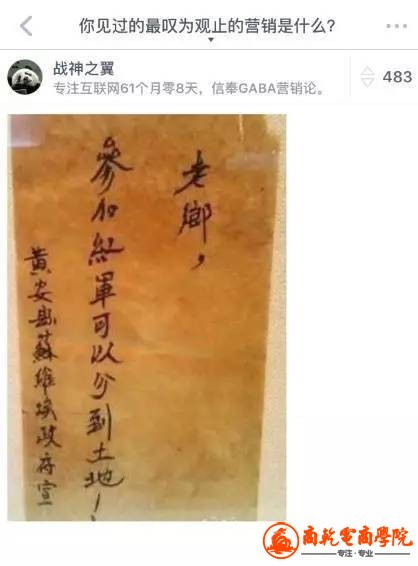 你见过的最叹为观止的营销是什么?
战神之翼
专注互联网61个月零8天，信奉GABA营销论。
483
老鄉，
參加紅軍可以分到土地！
黃安縣蘇維埃政府宣
商乾电商学院
专注·专业